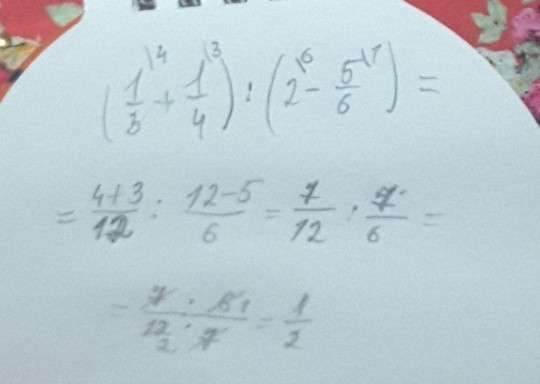 (1\4/3 + 1\3/4) : (2\6 - 5\1/6) =
= 4+3/12 : 12-5/6 = 7/12 : 7/6 =
= 7 · 6 1/12 2 · 7 = 1/2